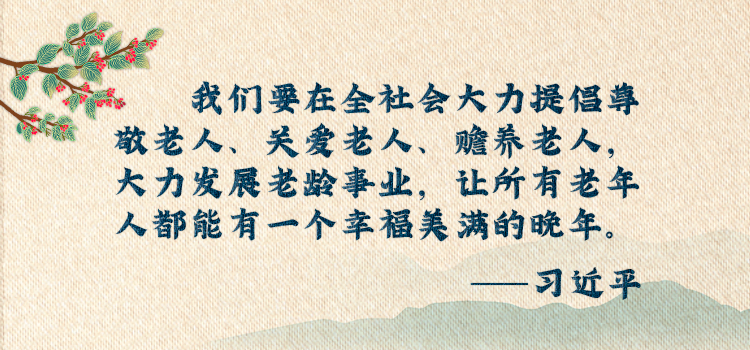 我们要在全社会大力提倡尊
敬老人、关爱老人、赡养老人，
大力发展老龄事业，让所有老年
人都能有一个幸福美满的晚年。
——习近平